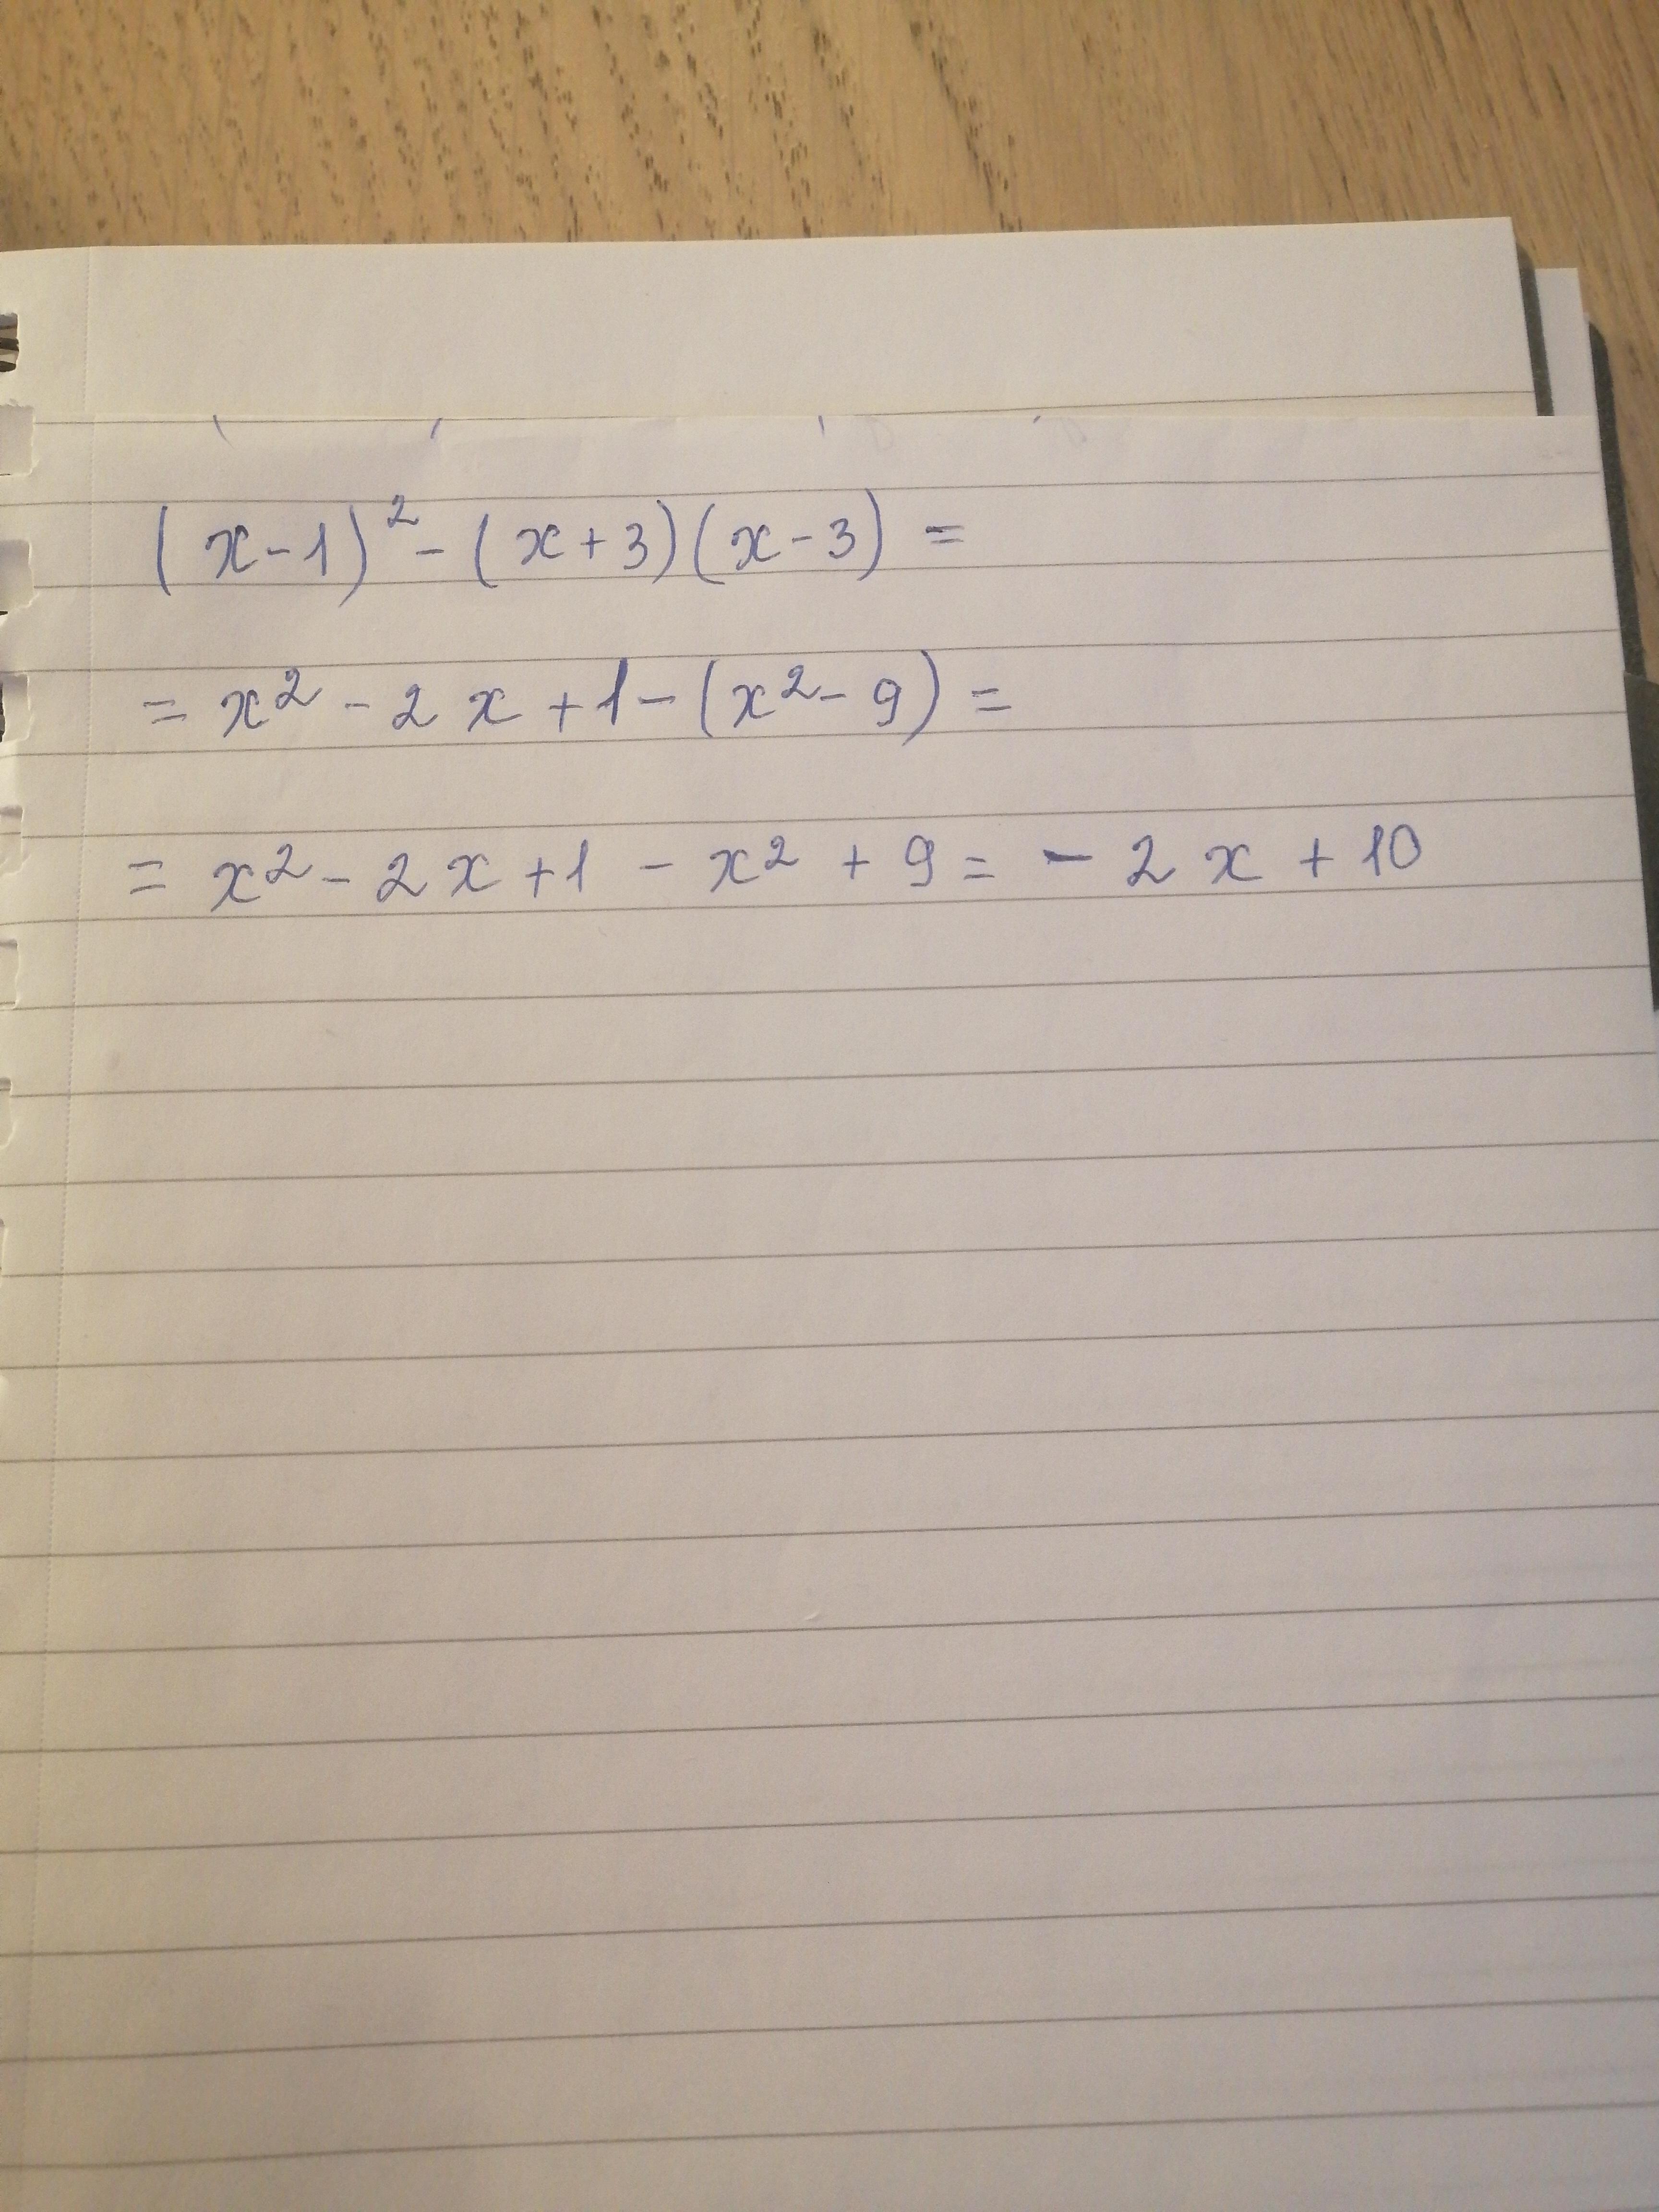 (x-1)² - (x+3)(x-3) =
= x² - 2x + 1 - (x² - 9) =
= x² - 2x + 1 - x² + 9 = - 2x + 10